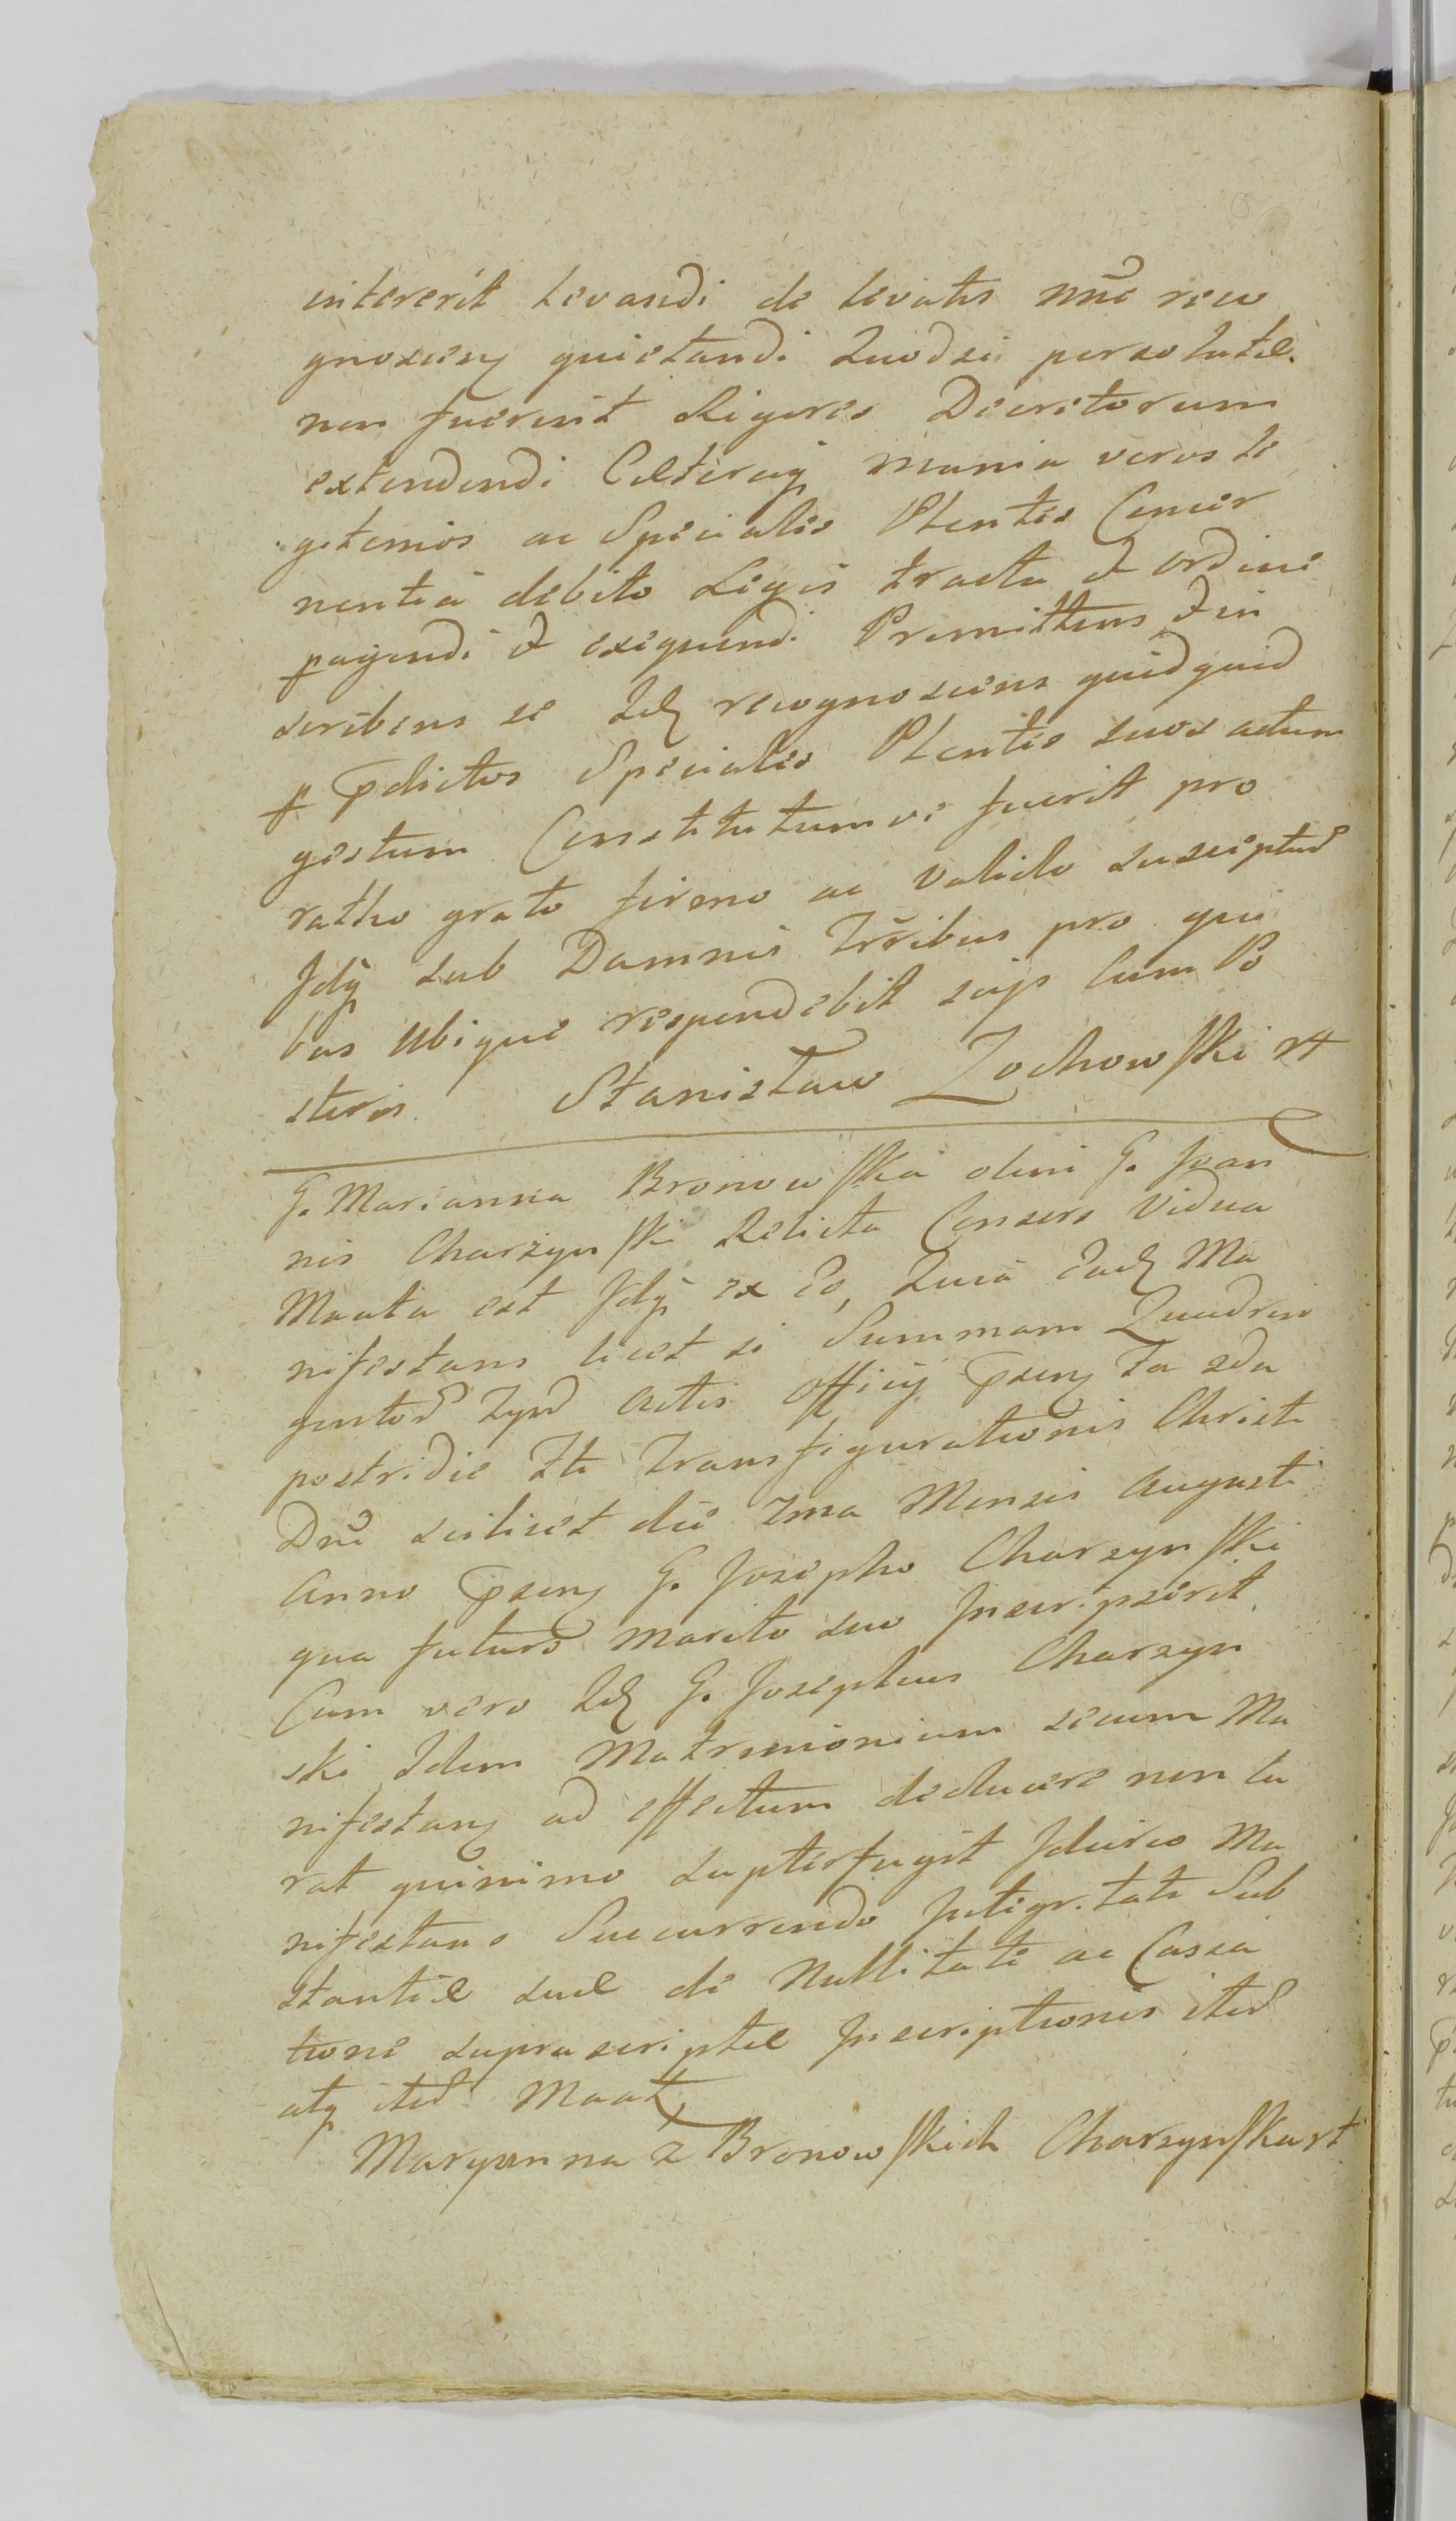 intererit levandi de levatis nñe reco
gnoscenȝ quietandi Quodsi persolutæ
non fuerint Rigores Decretorum
extendendi Cæteraq̃ omnia veros le
gitimos ac Speciales Plentes Concer
nentia debito Legis tractu et ordine
peragendi et exequendi Promittens et in
scribens se Idȝ recognoscens quidquid
per p̃dictos Speciales Plentes suos actum
gestum Constitutumve fuerit pro
ratho grato firmo ac valido suscipturũ
Idq̃ sub Damnis Trr̃ibus pro qui
bus ubique respondebit seip̃ cum Po
steris Stanisław Zochowski rt
G. Marianna Bronowska olim G. Joan
nis Charzynski Relicta Consors Vidua
Maata est Idq̃ ex eo, Quia eadȝ Ma
nifestans licet si Summam Quadrin
gentoř Zypoł Actis Officij p̃senȝ Fa 2da
postridie Fti Transfigurationis Christi
Dnĩ scilicet die 7ma Mensis Augusti
Anno p̃senȝ G. Josepho Charzynski
qua futuro marito suo Inscripserit
Cum vero Idȝ G. Josephus Charzyn
ski Idem Matrimonium secum Ma
nifestanȝ ad effectum deducere non cu
rat quinimo supterfugit Idcirco Ma
nifestans Succurrendo Integritati Sub
stantiæ suæ de Nullitate ac Cassa
tione suprascriptæ Inscriptionis iteř
atq̃ iteř Maat
Maryanna z Bronowskich Charzynska rt